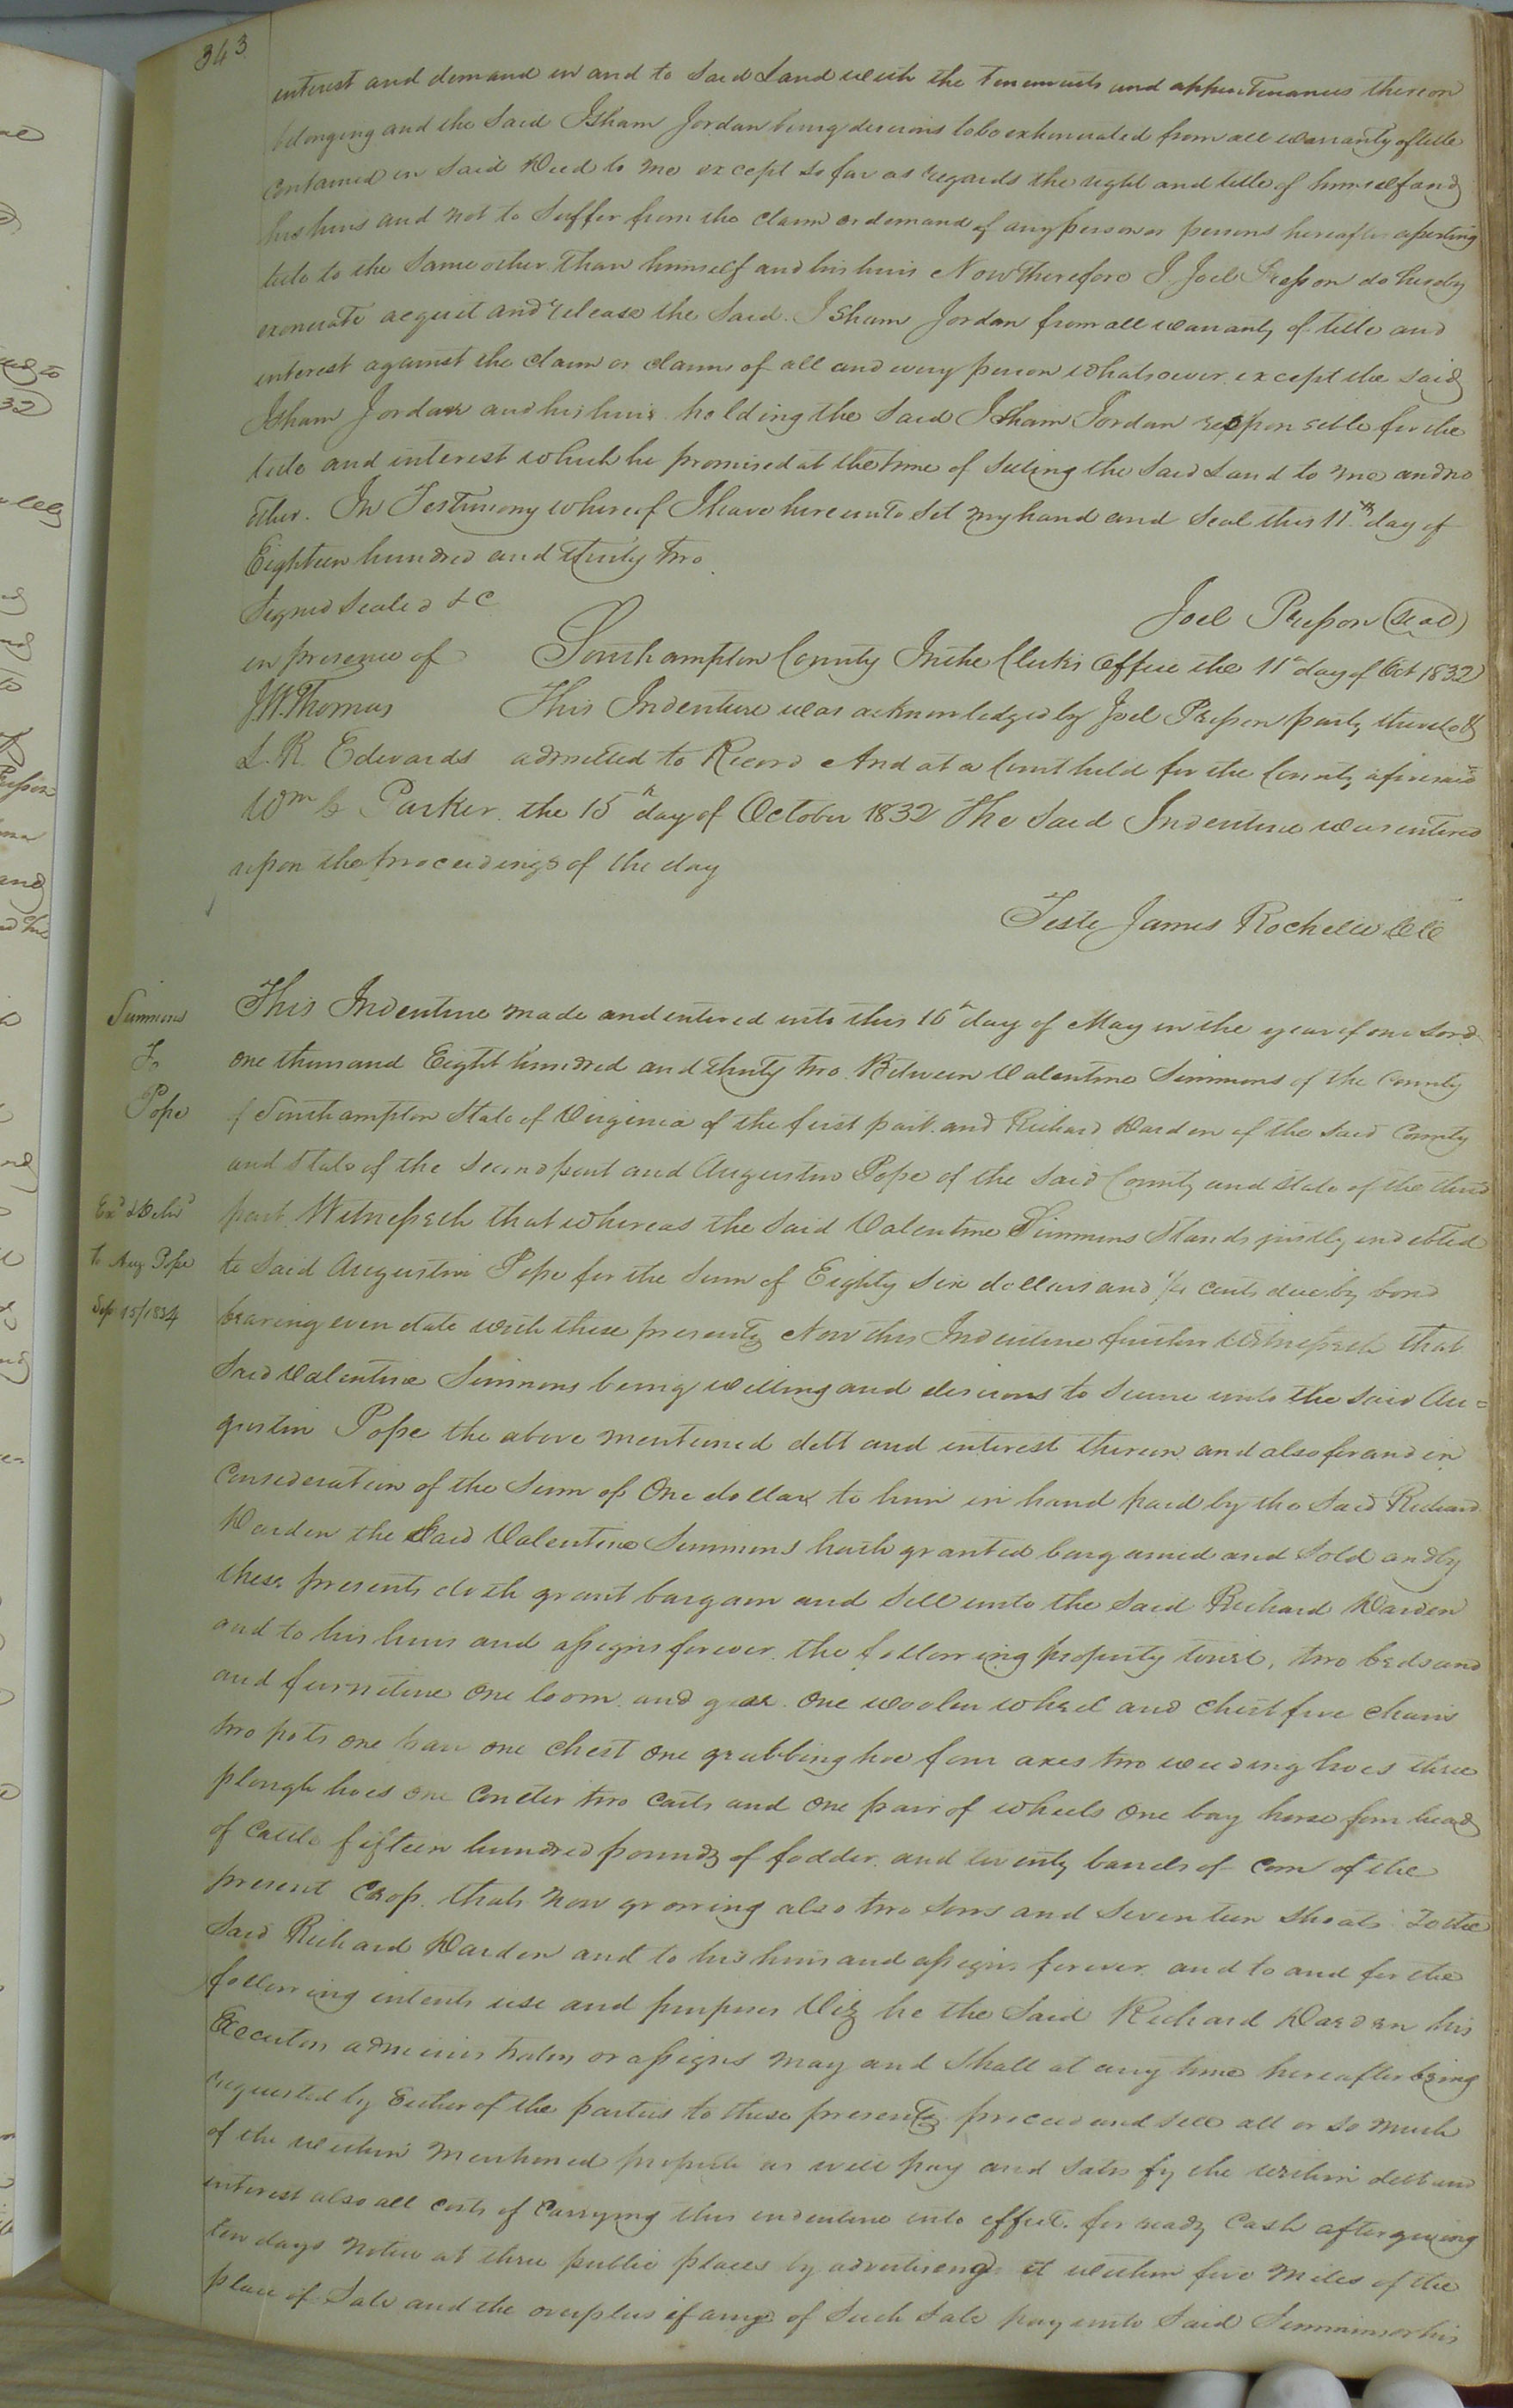 343
interest and demand in and to said Land with the tenements and appurtenances thereon
belonging and the said Isham Jordan being desirous to be exhonerated from all warranty of title
contained in said Deed to me except so far as regards the right and title of himself and
his heirs and not to suffer from the claim or demand of any person or persons hereafter asserting
title to the same other than himself and his heirs Now Therefore I Joel Presson do hereby
exonerate acquit and release the said Isham Jordan from all warranty of title and
interest against the claim or claims of all and every person whatsoever except the said
Isham Jordan and his heirs holding the said Isham Jordan responsible for the
title and interest which he promised at the time of selling the said Land to me and no
other. In Testimony whereof I have hereunto set my hand and seal this 11th day of
Eighteen hundred and thirty two
Signed sealed & c
Joel Presson (seal)
in presence of Southampton County In the Clerks office the 11th day of Oct 1832
J.W. Thomas This Indenture was acknowledged by Joel Presson party thereto &
L. R. Edwards admitted to Record And at a Court held for the County aforesaid
Wm Parker the 15th day of October 1832 The said Indenture was entered
upon the proceedings of the day
Teste James Rochelle CC
Simmons
To
Pope
Exd & Delivd
to Aug. Pope
Sep 15/1834
This Indenture made and entered into this 16th day of May in the year of our Lord
one thousand Eight hundred and thirty two Between Valentine Simmons of the County
of Southampton State of Virginia of the first part and Richard Darden of the said County
and State of the second part and Augustin Pope of the said County and State of the third
part Witnesseth that whereas the said Valentine Simmons stands justly indebted
to said Augustin Pope for the sum of Eighty six dollars and cents due by bond
bearing even date with these presents Now this Indenture further Witnesseth that
said Valentine Simmons being willing and desirous to secure unto the said Au=
gustin Pope the above mentioned debt and interest thereon and also for and in
Consideration of the Sum of One dollar to him in hand paid by the said Richard
Darden the Said Valentine Simmons hath granted bargained and Sold and by
these presents doth grant bargain and sell unto the said Richard Darden
and to his heirs and assigns forever the following property towit, two beds and
and furniture one loom and gear one woolen wheel and chest five chairs
two pots one pan one chest one grubbing hoe four axes two weeding hoes three
plough hoes one Coulter two carts and one pair of wheels one bay horse four head
of cattle fifteen hundred pounds of fodder and twenty barrels of corn of the
present Crop thats now growing also two sows and seventeen shoats To the
said Richard Darden and to his heirs and assigns forever and to and for the
following intents use and purposes Viz he the said Richard Darden his
Executors administrators or assigns may and shall at any time hereafter being
requested by Either of the parties to these presents proceed and sell all or so much
of the within mentioned property as will pay and satisfy the within debt and
interest also all costs of carrying this indenture into effect for ready Cash after giving
ten days notice at three public places by advertising it within five miles of the
place of Sale and the overplus if any of such sale pay unto said Simmons or his